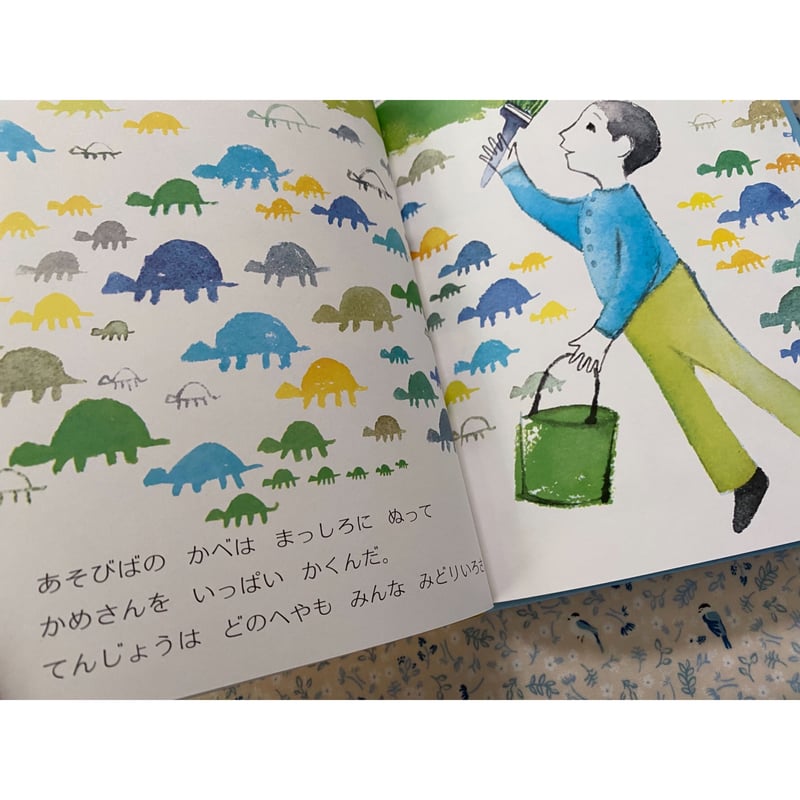 あそびばの かべは まっしろに ぬって
かめさんを いっぱい かくんだ。
てんじょうは どのへやも みんな みどりいろ